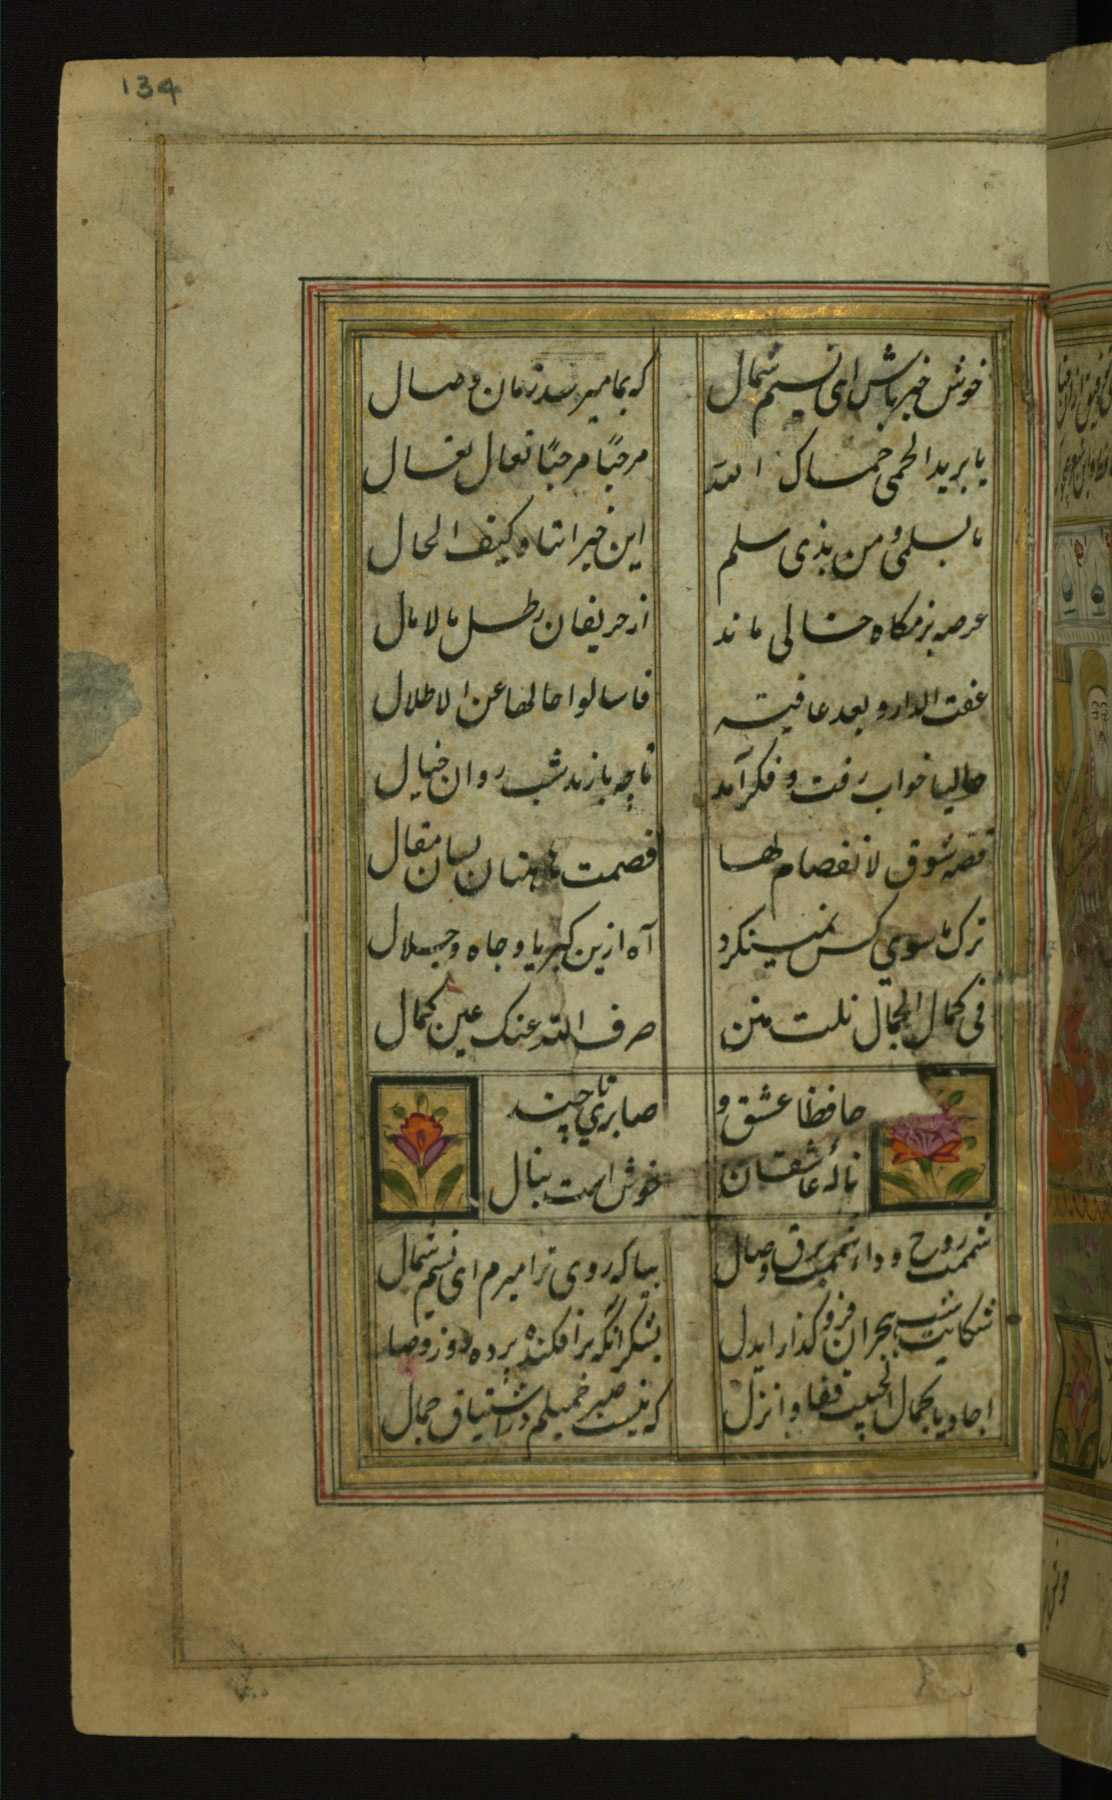 134
خوش خبر باش ای نسیم شمال
که بما میرسد زمان وصال
یا برید الحمی حماک الله
مرحبًا مرحبًا تعال تعال
ما بسلمی و من بذی سلم
این خیراننا و کیف الحال
عرصه بزمگاه خالی ماند
از حریفان رطل مالامال
عفت الدار و بعد عافیته
فاسالوا حالها عن الاطلال
حالیا خواب رفت و فکر آمد
تا چه بازند شب روان خیال
قصه شوق لانفصام لها
فصمت هاهنا لسان مقال
ترک ما سوی کس نمینکرد
آه ازین کبریا و جاه و جلال
فی کمال الجمال نلت منن
صرف الله عنک عین کمال
حافظا عشق و
صابری تا چند
نالهٔ عاشقان
خوش است بنال
شممت روح وداد شممت برق وصال
بیا که روی ترا میرم ای نسیم شمال
شکایت شب هجران فرو کذار ایدل
بشکر آنکه برافکند پرده روز وصا
احادیا بجمال الحبیب قف و انزل
که نیست صبر جمیلم در اشتیاق جمال